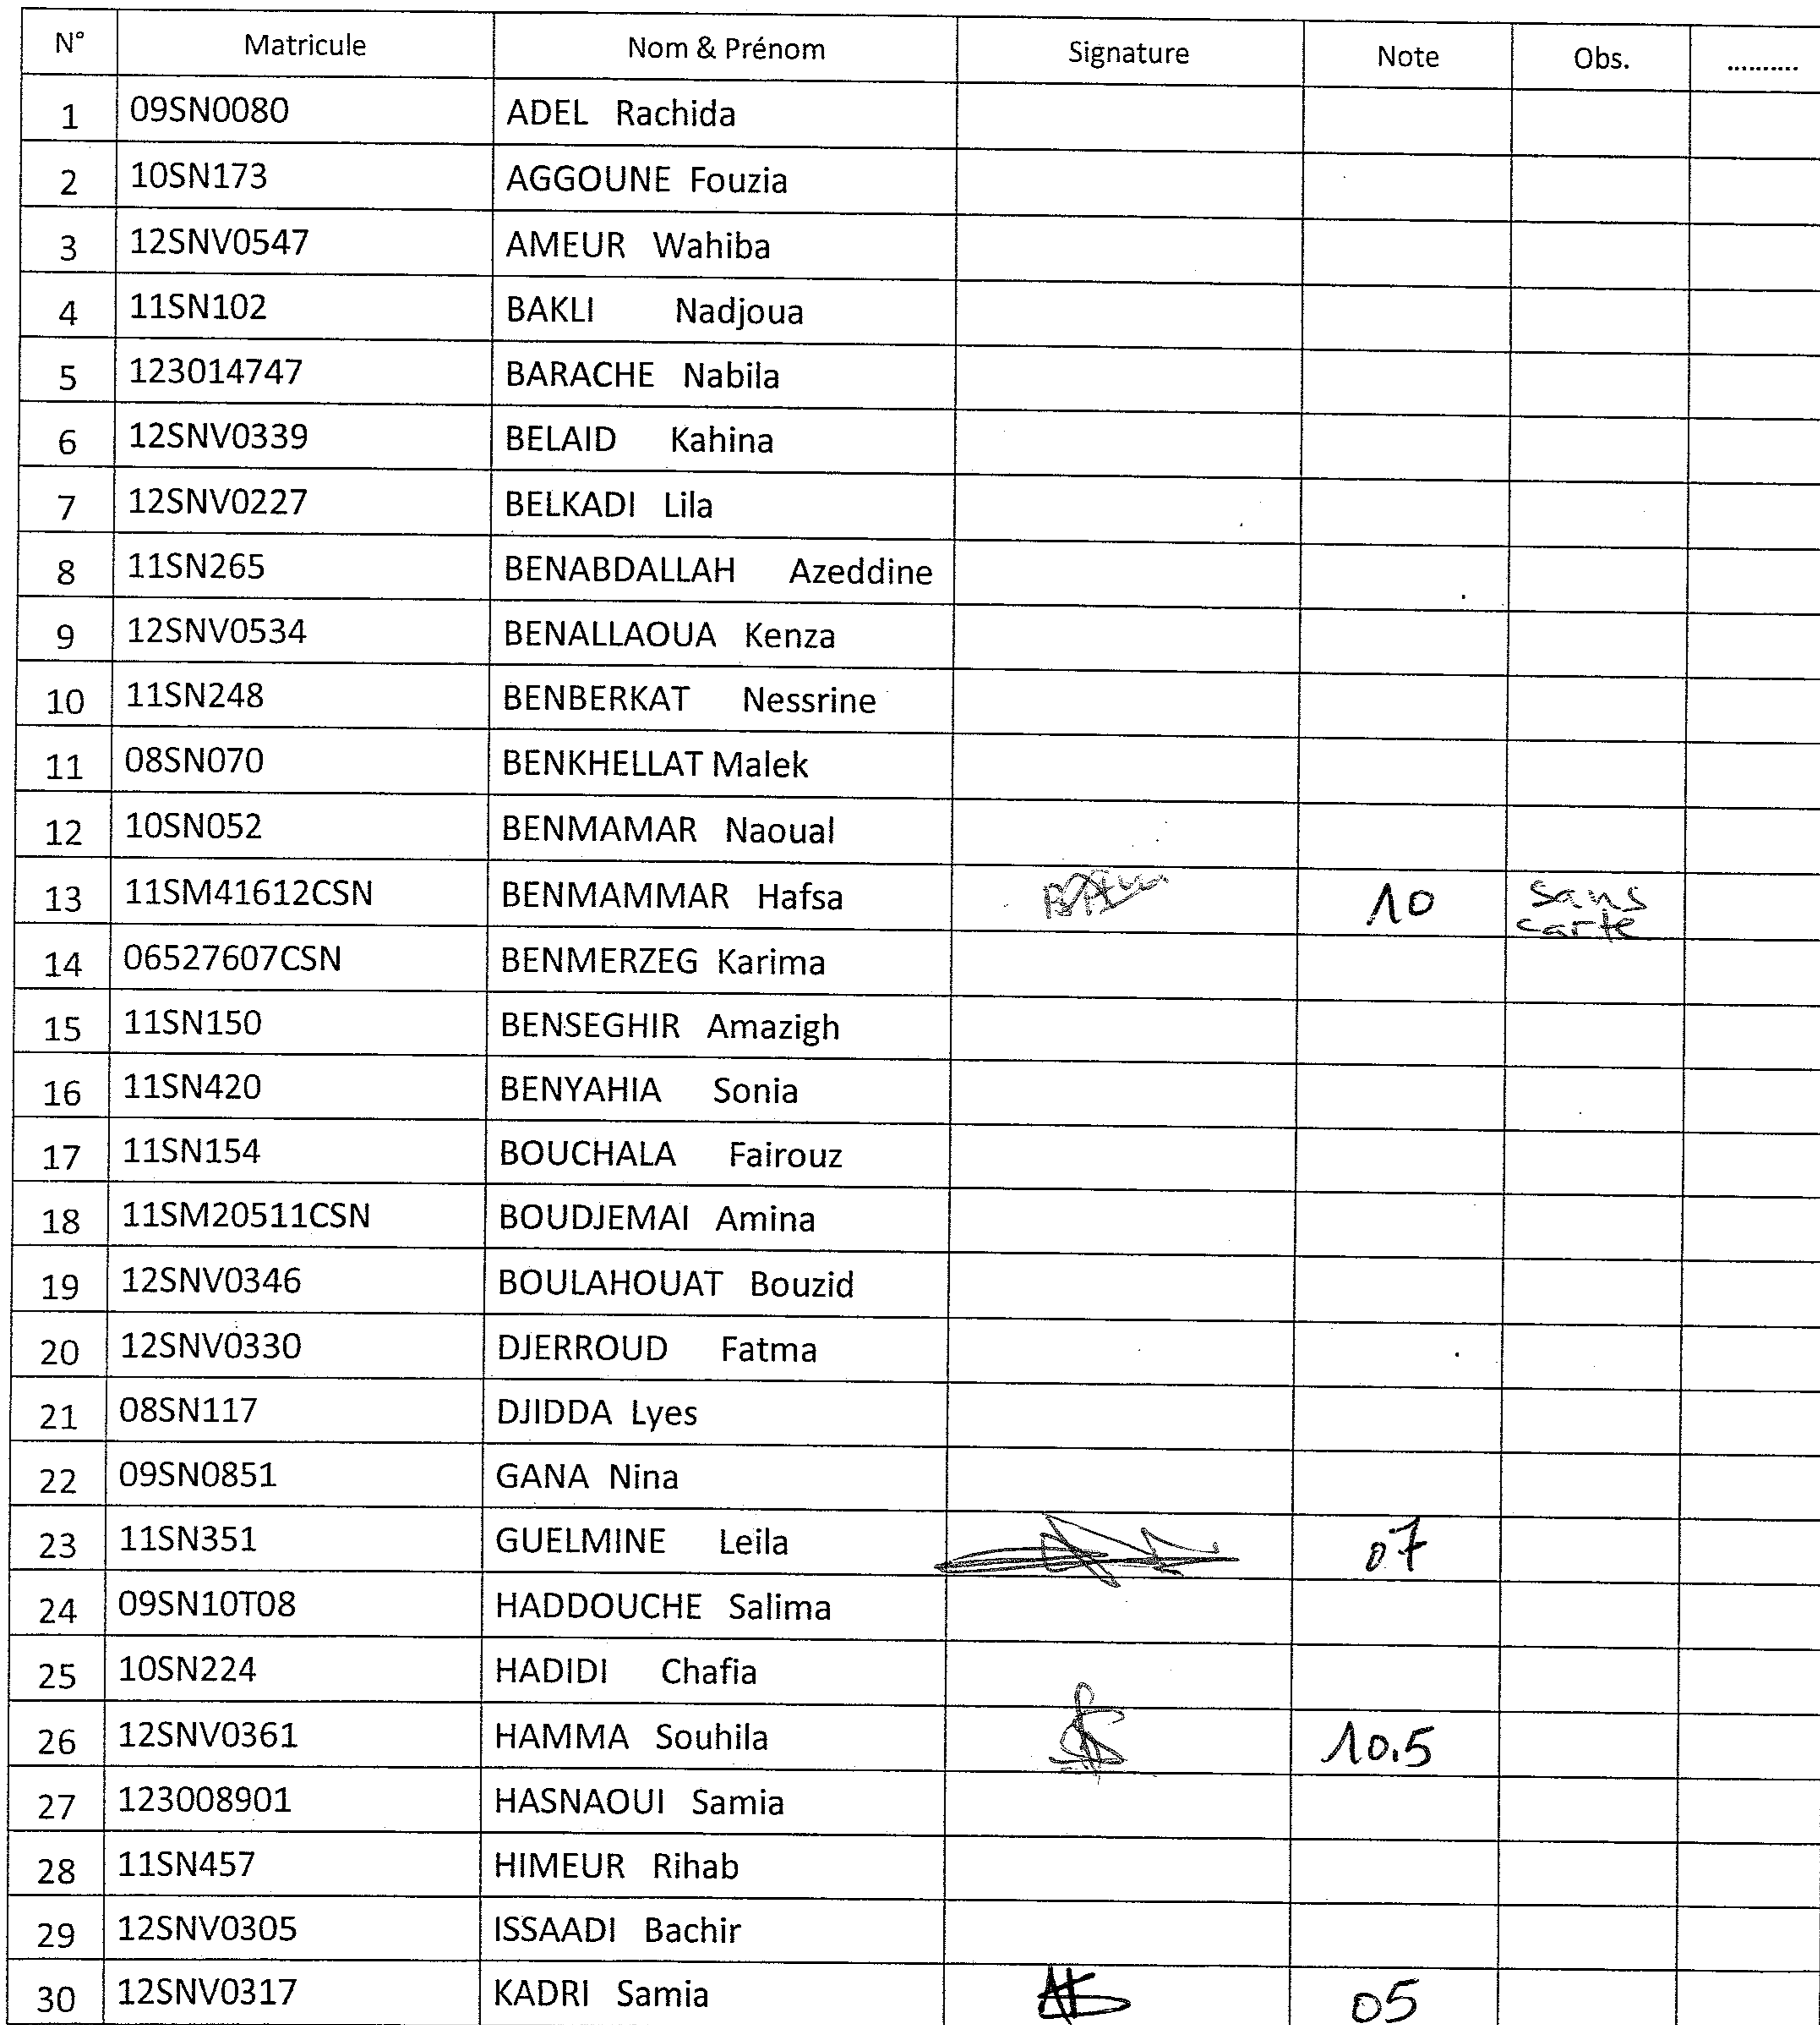 N° Matricule Nom & Prénom Signature Note Obs. ..........
1 09SN0080 ADEL Rachida
2 10SN173 AGGOUNE Fouzia
3 12SNV0547 AMEUR Wahiba
4 11SN102 BAKLI Nadjoua
5 123014747 BARACHE Nabila
6 12SNV0339 BELAID Kahina
7 12SNV0227 BELKADI Lila
8 11SN265 BENABDALLAH Azeddine
9 12SNV0534 BENALLAOUA Kenza
10 11SN248 BENBERKAT Nessrine
11 08SN070 BENKHELLAT Malek
12 10SN052 BENMAMAR Naoual
13 11SM41612CSN BENMAMMAR Hafsa 10 sans carte
14 06527607CSN BENMERZEG Karima
15 11SN150 BENSEGHIR Amazigh
16 11SN420 BENYAHIA Sonia
17 11SN154 BOUCHALA Fairouz
18 11SM20511CSN BOUDJEMAI Amina
19 12SNV0346 BOULAHOUAT Bouzid
20 12SNV0330 DJERROUD Fatma
21 08SN117 DJIDDA Lyes
22 09SN0851 GANA Nina
23 11SN351 GUELMINE Leila 07
24 09SN10T08 HADDOUCHE Salima
25 10SN224 HADIDI Chafia
26 12SNV0361 HAMMA Souhila 10.5
27 123008901 HASNAOUI Samia
28 11SN457 HIMEUR Rihab
29 12SNV0305 ISSAADI Bachir
30 12SNV0317 KADRI Samia 05